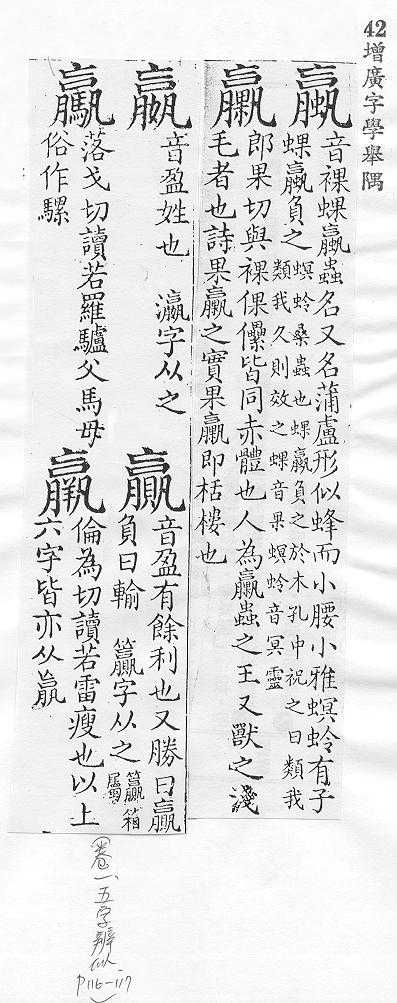 42
增廣字學舉隅
蠃 音裸蜾蠃蟲名又名蒲盧形似蜂而小腰小雅螟蛉有子
蜾蠃負之
螟蛉桑蟲也蜾蠃負之於木孔中祝之曰類我
類我久則效之蜾音果螟蛉音冥靈
臝 郎果切與裸倮儽皆同赤體也人為臝蟲之王又獸之淺
毛者也詩果臝之實果臝即栝樓也
嬴 音盈姓也 瀛字从之
贏 音盈有餘利也又勝曰贏
負曰輸 籯字从之
籯箱
屬
驘 落戈切讀若羅驢父馬母
俗作騾
羸 倫為切讀若雷瘦也以上
六字皆亦从𣎆
(卷一、五字辨似
P116-117)